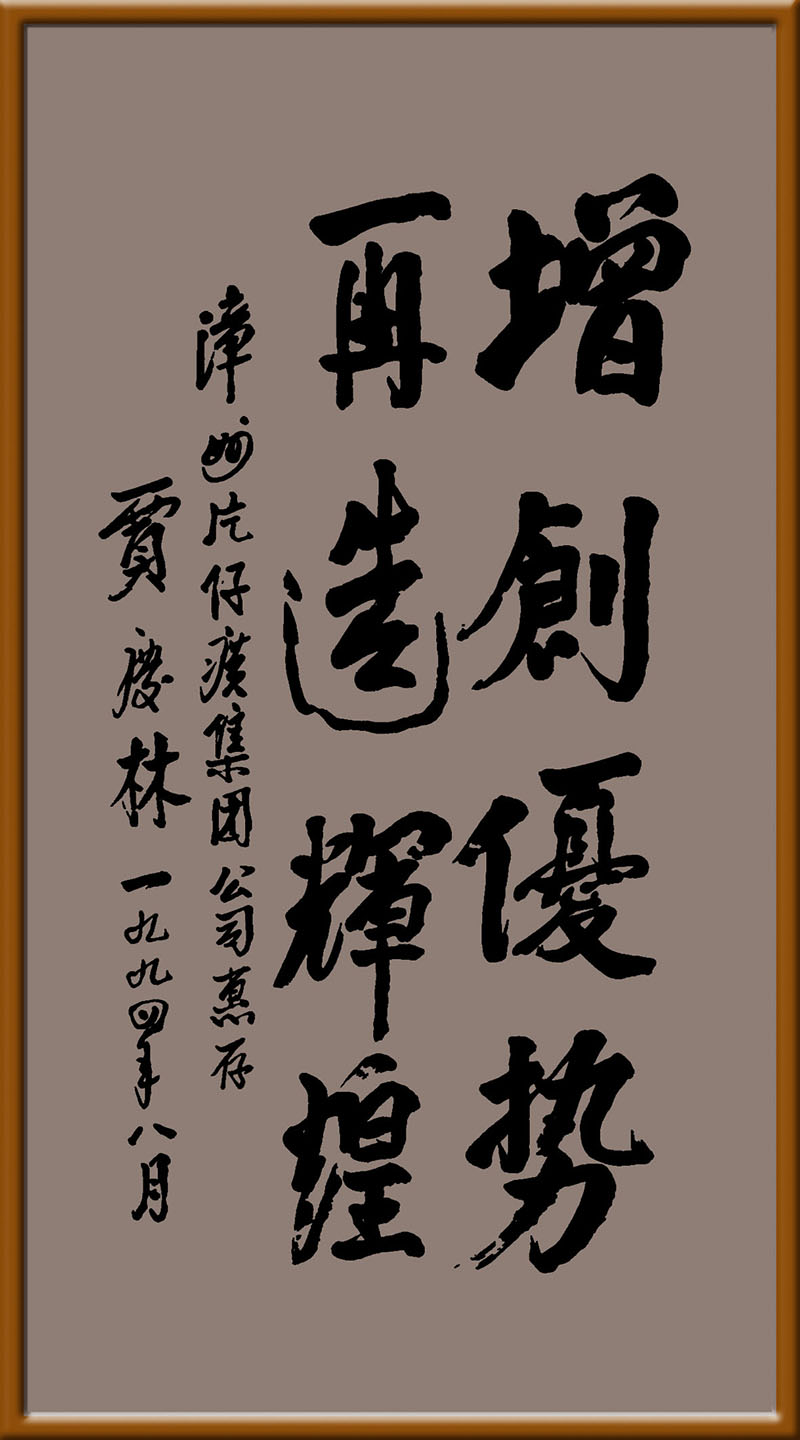 增創優势
再造輝煌
漳州片仔癀集团公司惠存
賈慶林一九九四年八月